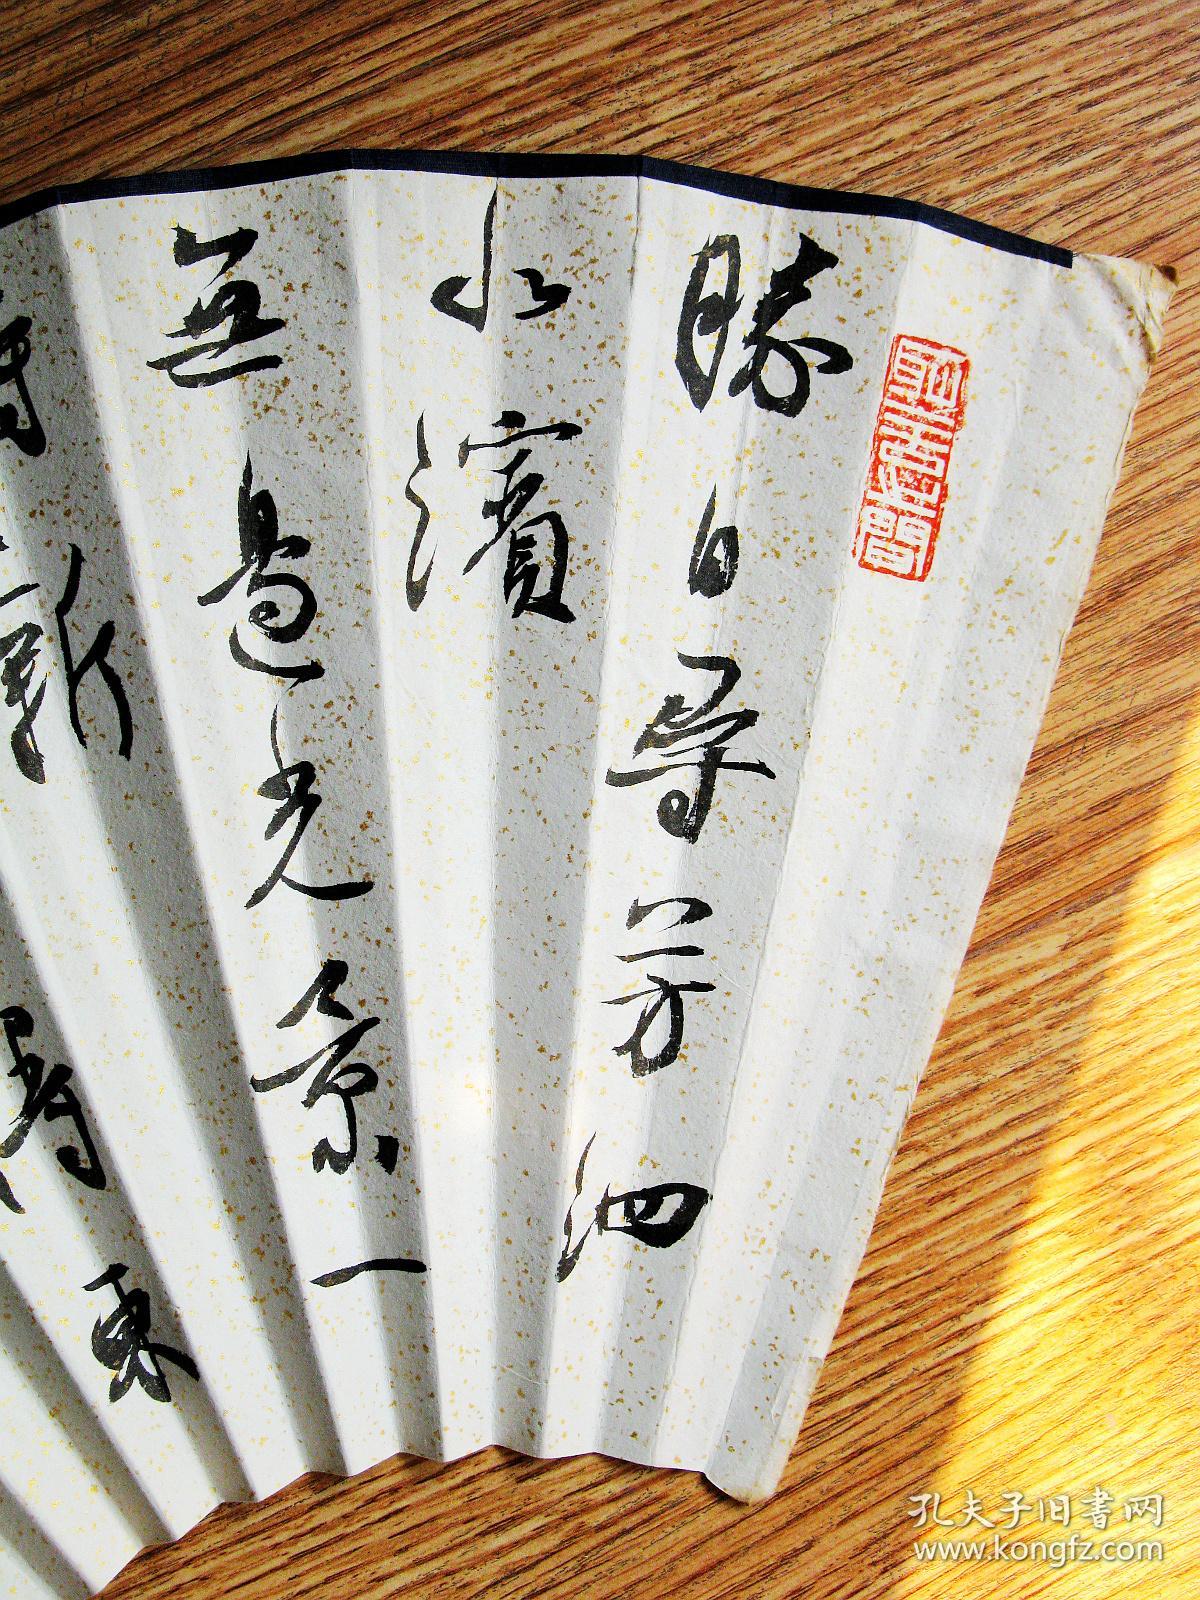 勝日尋芳泗
水濱
無邊光景一
時新
得東
孔夫子旧書网
www.kongfz.com